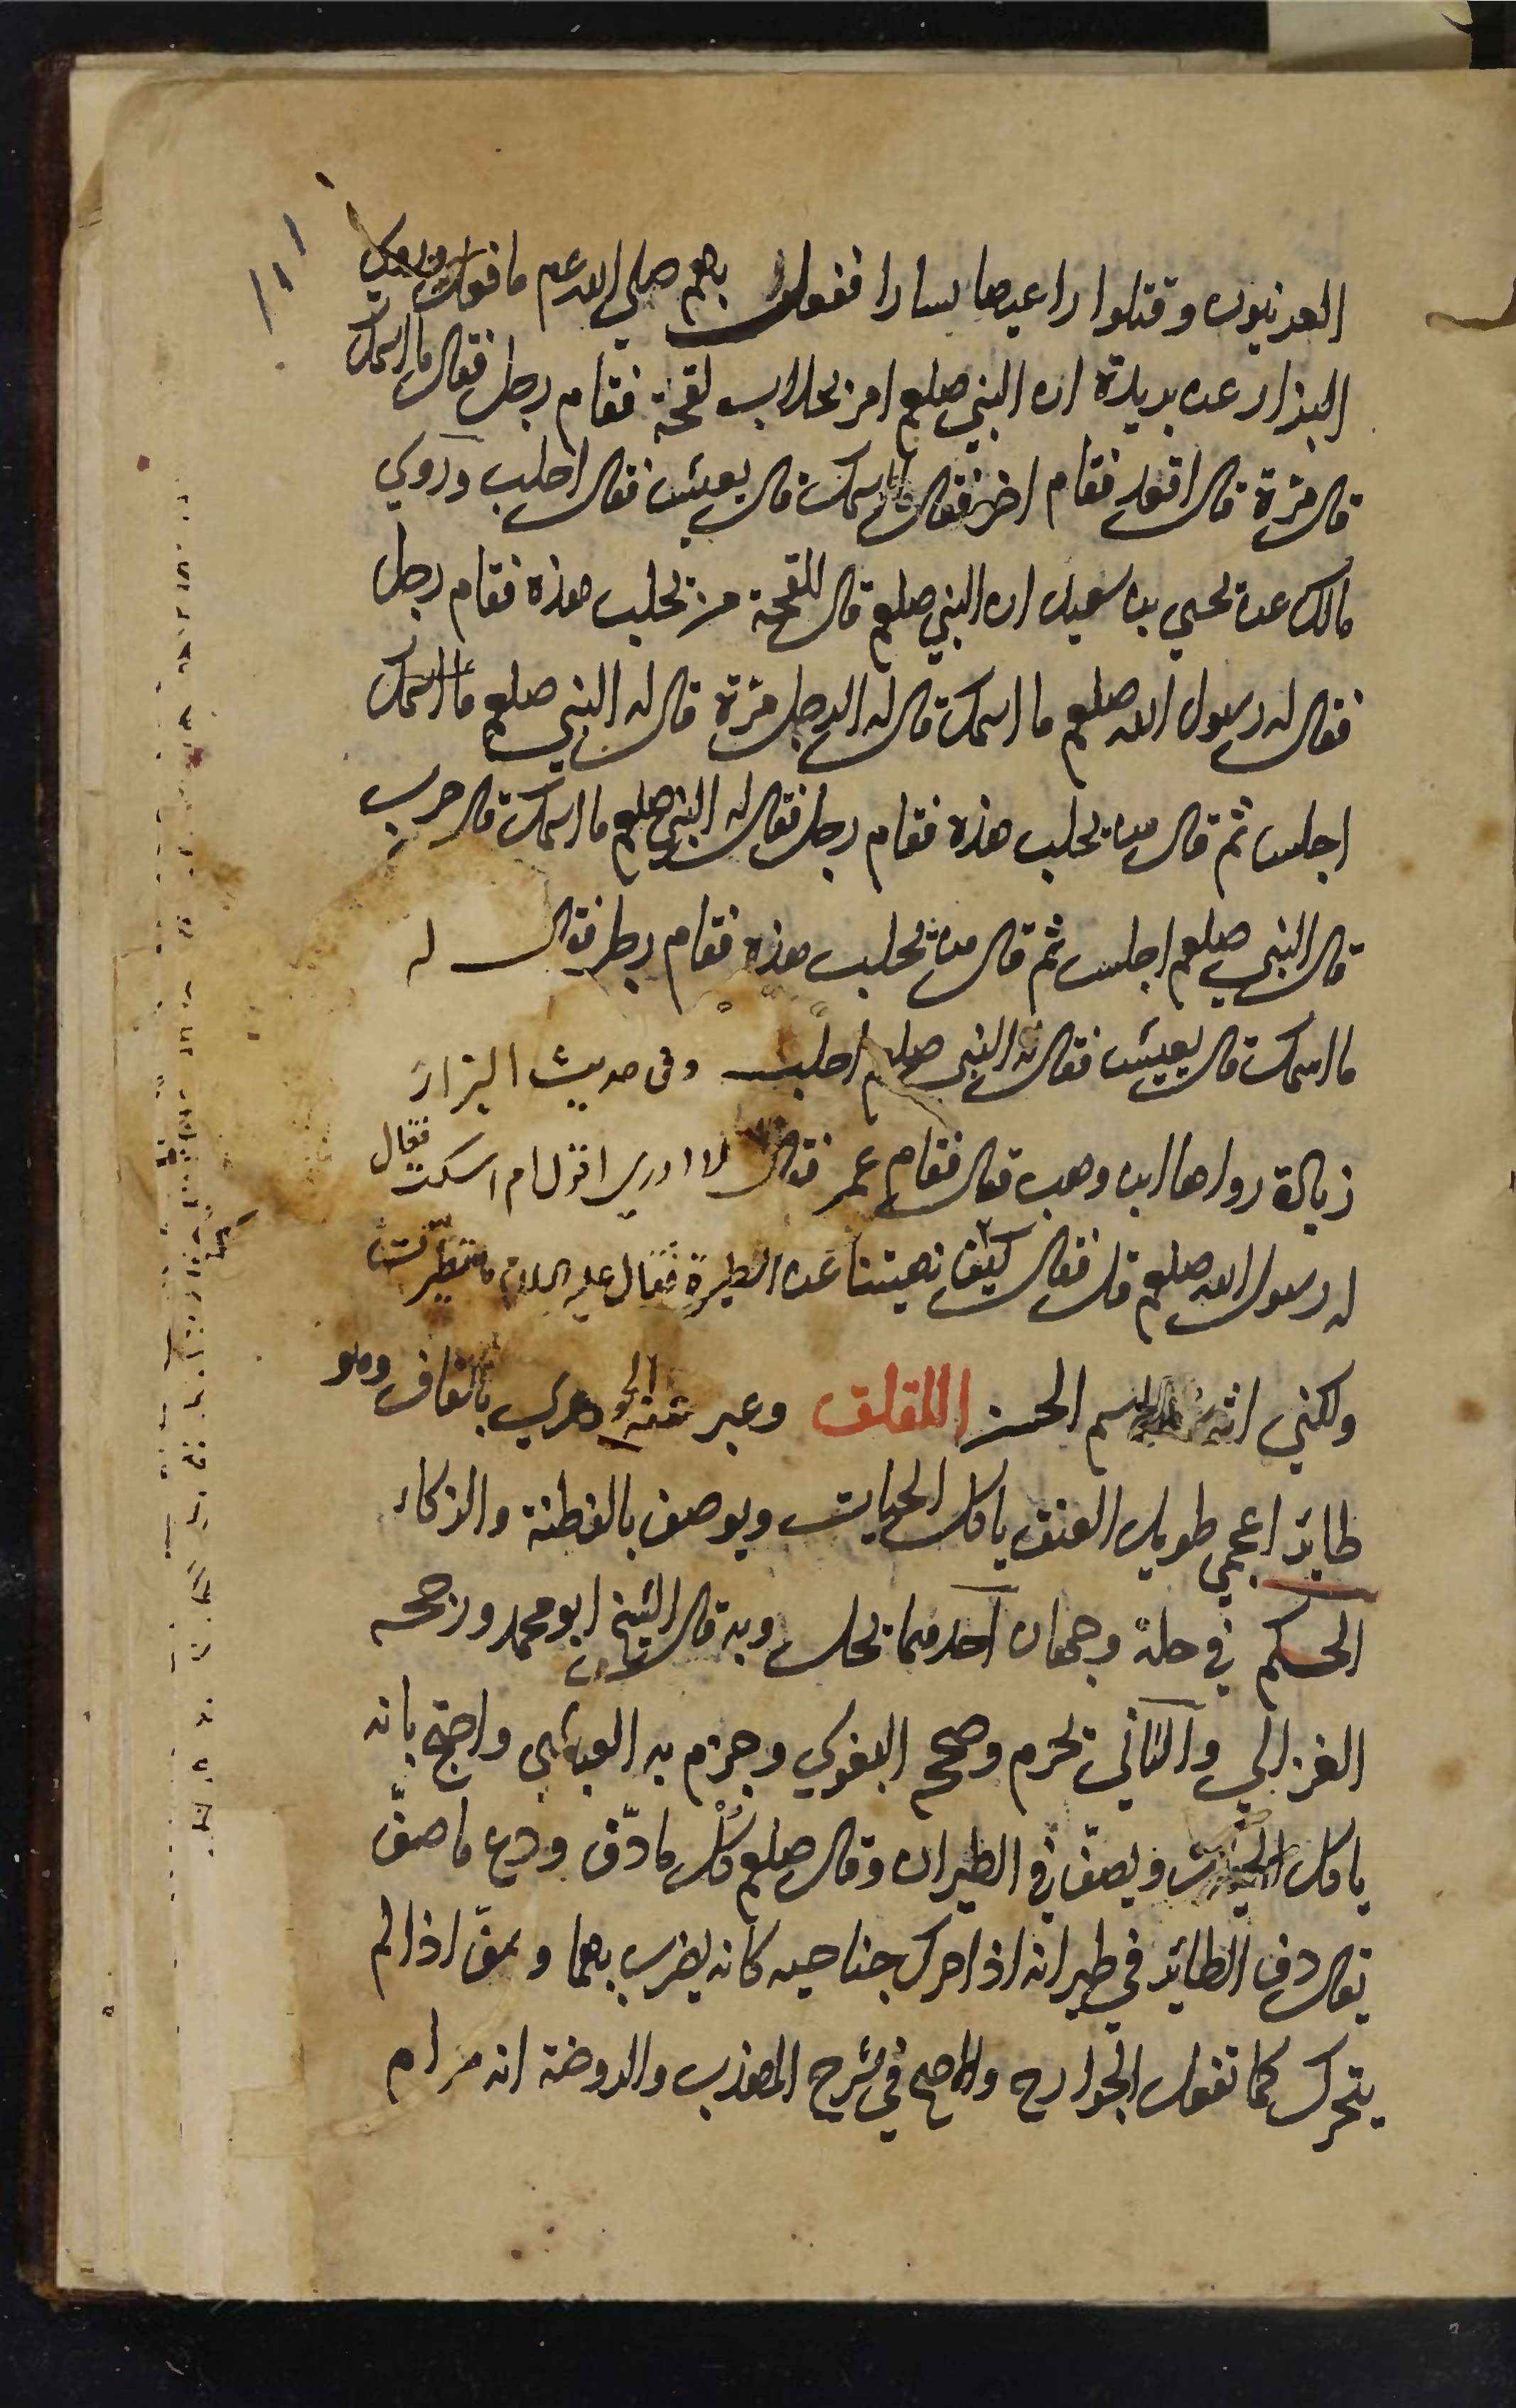 العرنيون وقتلوا راعيها يسارا ففعل بهم صلى الله عم ما فعل وروى
البزار عن بريدة ان النبي صلعم امر بحلاب لقحة فقام رجل فقال ما اسمك
قال مرة قال اقعد فقام اخر فقال ما اسمك قال يعيش فقال احلب وروي
مالك عن يحيى بن سعيد ان النبي صلعم قال للقحة من يحلب هذه فقام رجل
فقال له رسول الله صلعم ما اسمك قال له الرجل مرة قال له النبي صلعم ما اسمك
اجلس ثم قال من يحلب هذه فقام رجل فقال له النبي صلعم ما اسمك قال حرب
قال النبي صلعم اجلس ثم قال من يحلب هذه فقام رجل فقال له
ما اسمك قال يعيش فقال له النبي صلعم احلب وفى حديث البزار
زيادة رواها ابن وهب قال فقام عمر فقال لا ادري اقول ام اسكت فقال
له رسول الله صلعم قل فقال كيف نهيتنا عن الطيرة فقال عليه السلام ما تطيرت
ولكني اثرت الاسم الحسن اللقلق وعبر عنه الجوهري بالقاف وهو
طائر اعجمي طويل العنق ياكل الحيات ويوصف بالفطنة والذكاء
الحكم في حله وجهان احدهما يحل وبه قال الشيخ ابو محمد ورجحه
الغزالي والثاني يحرم وصححه البغوي وجزم به العبادي واحتج بانه
ياكل الحيات ويصف في الطيران وقال صلعم كل ما دف ودع ما صف
يقال دف الطائر في طيرانه اذا حرك جناحيه كانه يضرب بهما وصف اذا لم
يتحرك كما تفعل الجوارح والاصح في شرح المهذب والروضة انه حرام
١١١